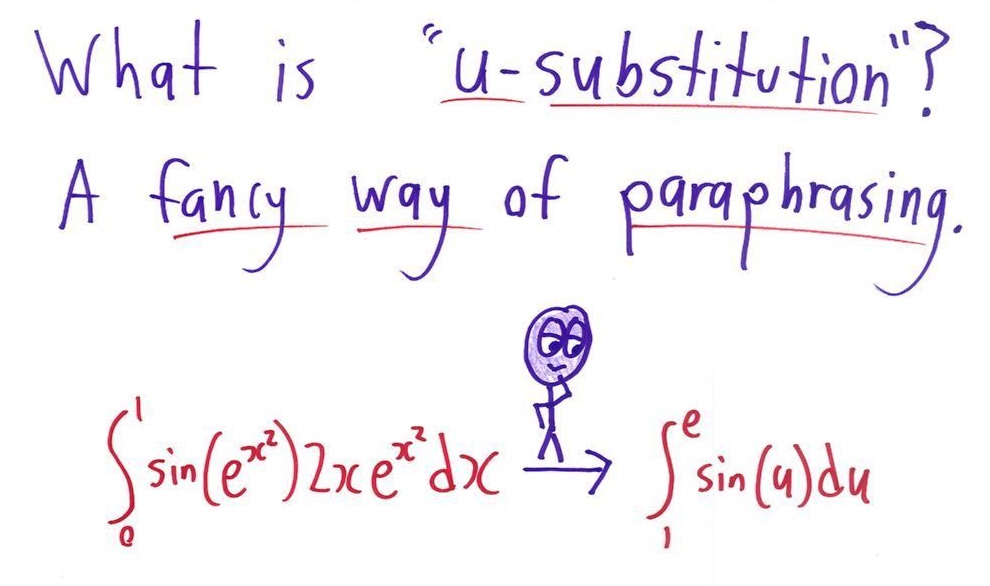 What is "u-substitution"?
A fancy way of paraphrasing.
∫₀¹ sin(e^{x²})2xe^{x²}dx → ∫₁ᵉ sin(u)du